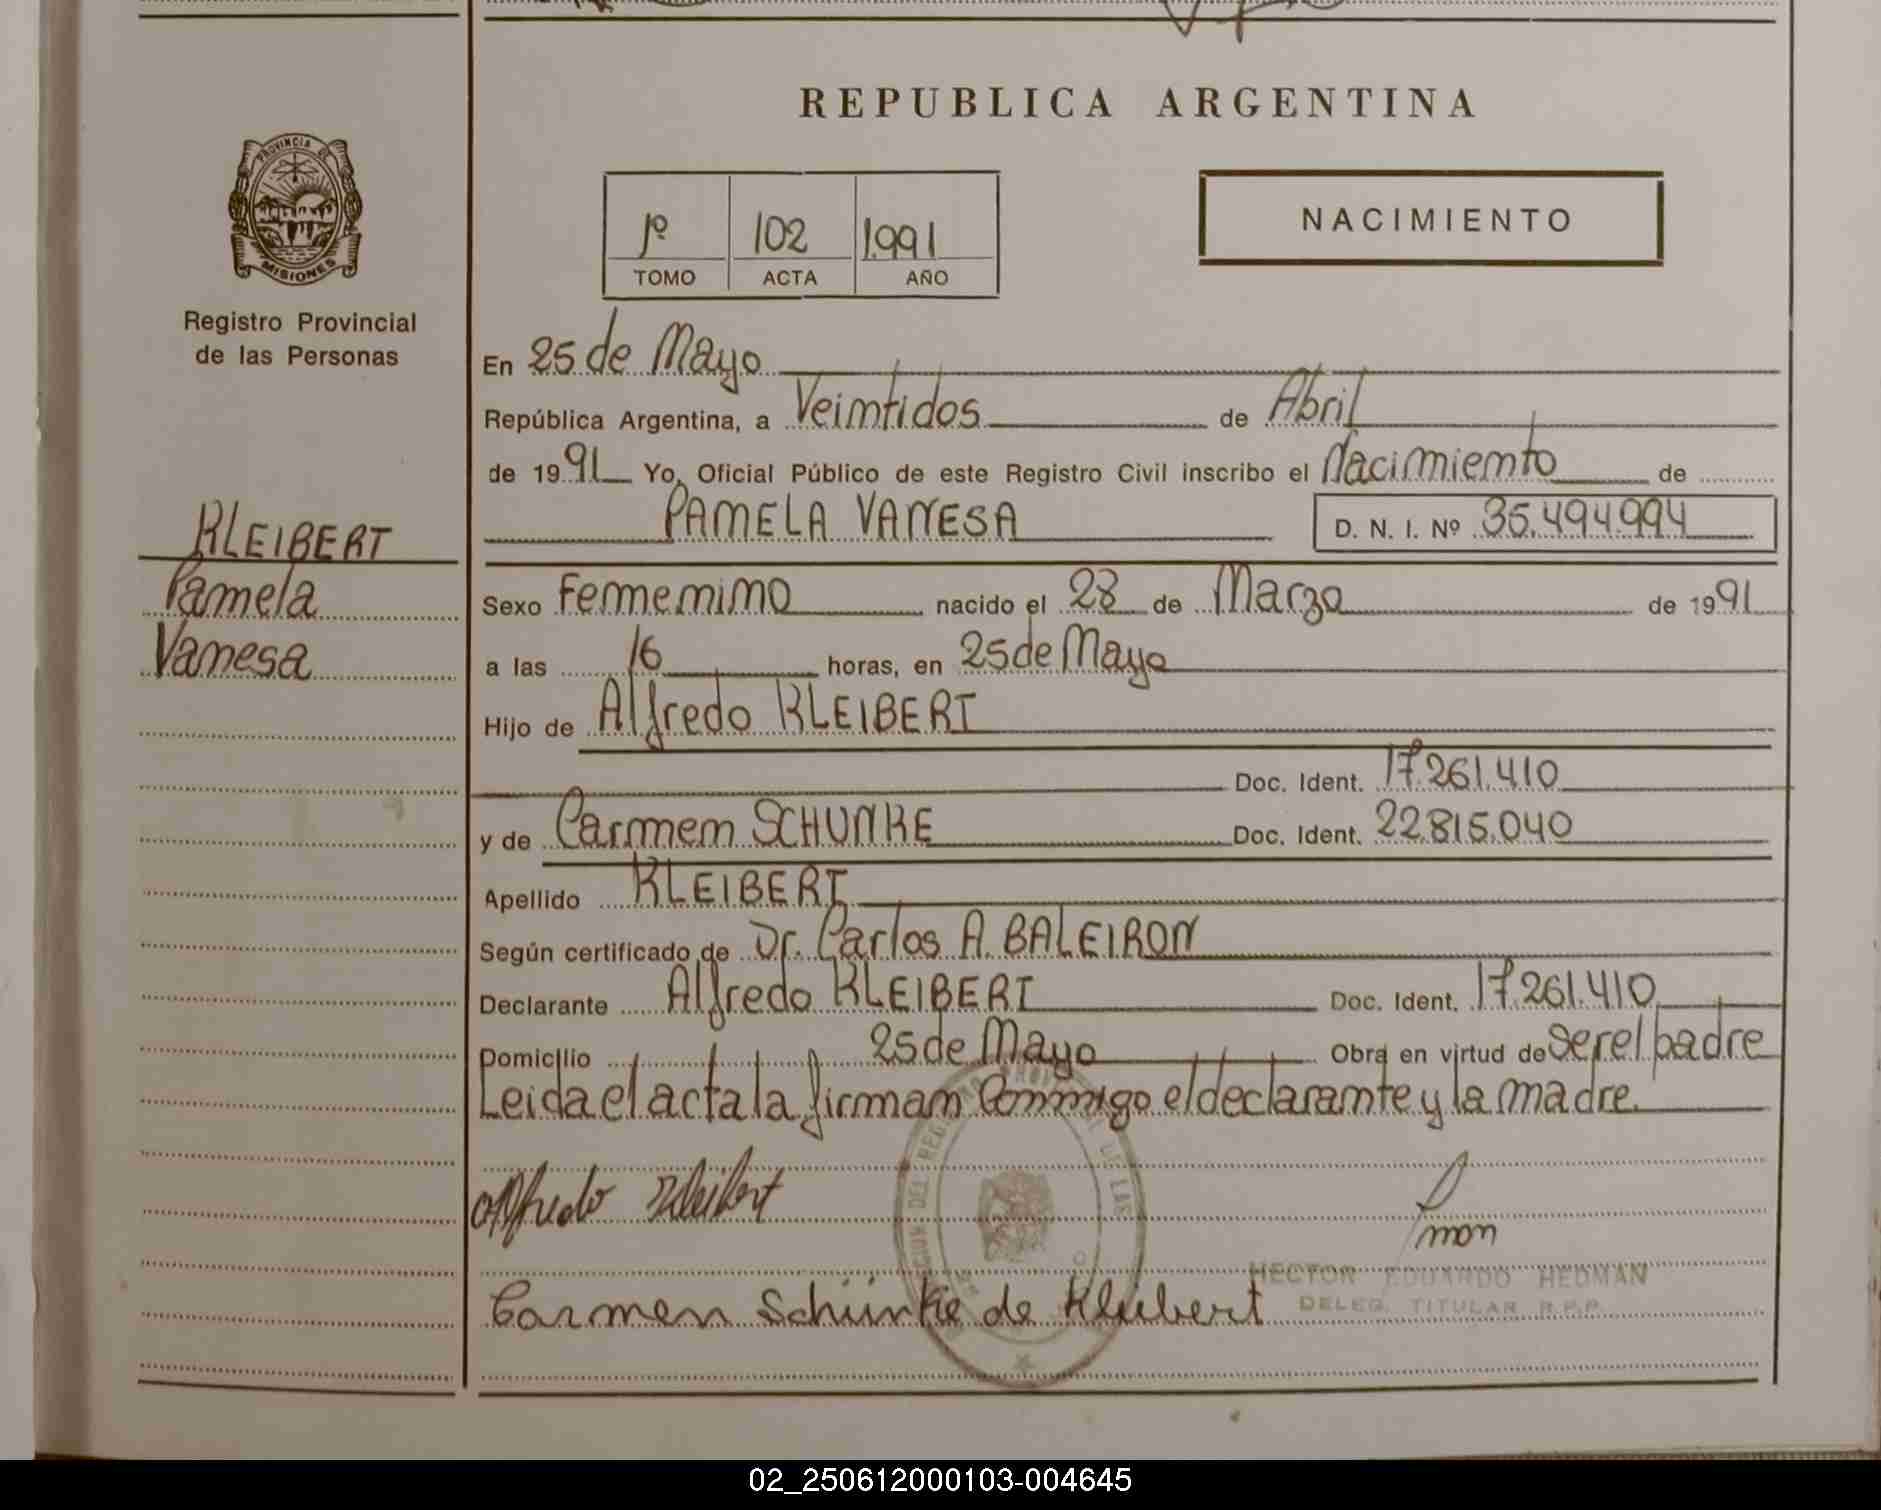 REPUBLICA ARGENTINA
PROVINCIA DE
MISIONES
Registro Provincial
de las Personas
1º 102 1.991
TOMO ACTA AÑO
NACIMIENTO
En 25 de Mayo
República Argentina, a Veintidos de Abril
de 1991 Yo, Oficial Público de este Registro Civil inscribo el Nacimiento de
KLEIBERT
Pamela
Vanesa
PAMELA VANESA D. N. I. Nº 35.494.994
Sexo Femenino nacido el 28 de Marzo de 1991
a las 16 horas, en 25 de Mayo
Hijo de Alfredo KLEIBERT
Doc. Ident. 17.261.410
y de Carmen SCHUNKE Doc. Ident. 22.815.040
Apellido KLEIBERT
Según certificado de Dr. Carlos A. BALEIRON
Declarante Alfredo KLEIBERT Doc. Ident. 17.261.410
Domicilio 25 de Mayo Obra en virtud de ser el padre
Leida el acta la firman Conmigo el declarante y la madre.
Alfredo Kleibert
HECTOR EDUARDO HEDMAN
DELEG. TITULAR R.P.P.
Carmen Schünke de Kleibert
02_250612000103-004645